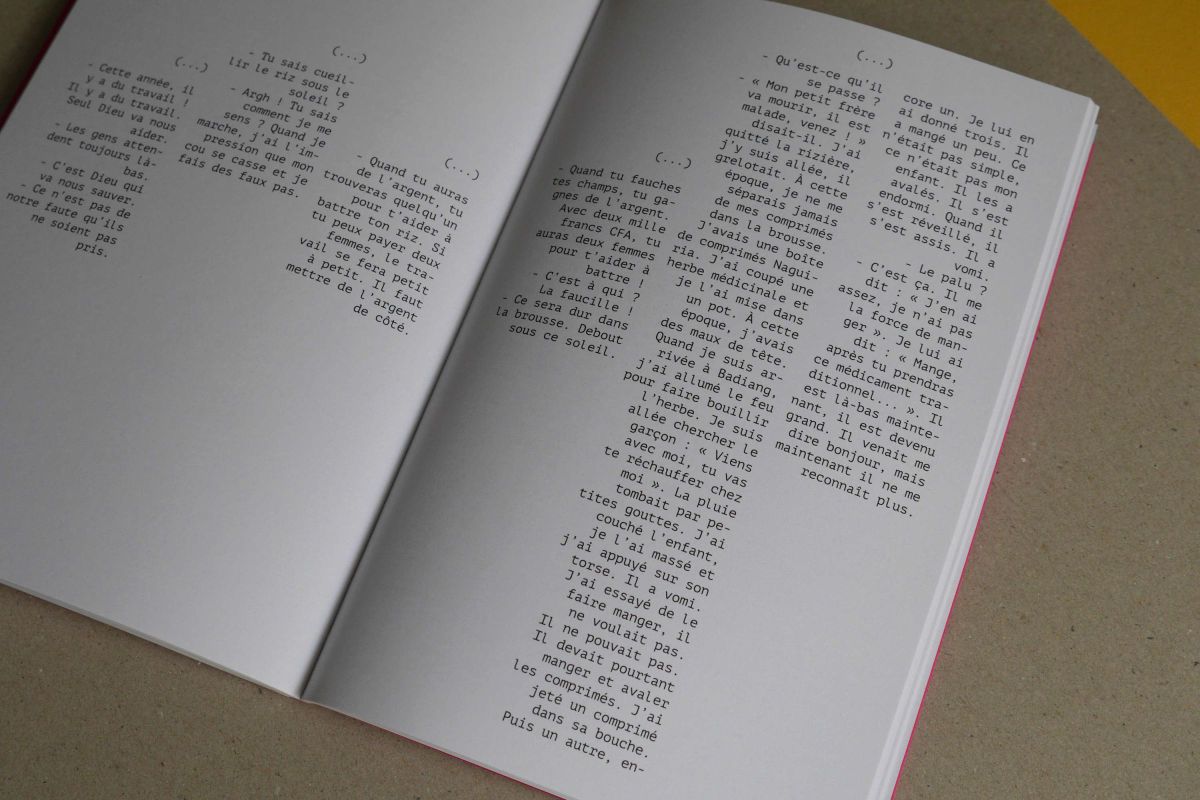 (...)
- Cette année, il
y a du travail !
Il y a du travail.
Seul Dieu va nous
aider.
- Les gens atten-
dent toujours là-
bas.
- C'est Dieu qui
va nous sauver.
- Ce n'est pas de
notre faute qu'ils
ne soient pas
pris.
(...)
- Tu sais cueil-
lir le riz sous le
soleil ?
- Argh ! Tu sais
comment je me
sens ? Quand je
marche, j'ai l'im-
pression que mon
cou se casse et je
fais des faux pas.
(...)
- Quand tu auras
de l'argent, tu
trouveras quelqu'un
pour t'aider à
battre ton riz. Si
tu peux payer deux
femmes, le tra-
vail se fera petit
à petit. Il faut
mettre de l'argent
de côté.
(...)
- Quand tu fauches
tes champs, tu ga-
gnes de l'argent.
Avec deux mille
francs CFA, tu
auras deux femmes
pour t'aider à
battre !
- C'est à qui ?
La faucille !
- Ce sera dur dans
la brousse. Debout
sous ce soleil.
(...)
- Qu'est-ce qu'il
se passe ?
- « Mon petit frère
va mourir, il est
malade, venez ! »
disait-il. J'ai
quitté la rizière,
j'y suis allée, il
grelotait. À cette
époque, je ne me
séparais jamais
de mes comprimés
dans la brousse.
J'avais une boîte
de comprimés Nagui-
ria. J'ai coupé une
herbe médicinale et
je l'ai mise dans
un pot. À cette
époque, j'avais
des maux de tête.
Quand je suis ar-
rivée à Badiang,
j'ai allumé le feu
pour faire bouillir
l'herbe. Je suis
allée chercher le
garçon : « Viens
avec moi, tu vas
te réchauffer chez
moi ». La pluie
tombait par pe-
tites gouttes. J'ai
couché l'enfant,
je l'ai massé et
j'ai appuyé sur son
torse. Il a vomi.
J'ai essayé de le
faire manger, il
ne voulait pas.
Il ne pouvait pas.
Il devait pourtant
manger et avaler
les comprimés. J'ai
jeté un comprimé
dans sa bouche.
Puis un autre, en-
core un. Je lui en
ai donné trois. Il
a mangé un peu. Ce
n'était pas simple,
ce n'était pas mon
enfant. Il les a
avalés. Il s'est
endormi. Quand il
s'est réveillé, il
s'est assis. Il a
vomi.
- Le palu ?
- C'est ça. Il me
dit : « J'en ai
assez, je n'ai pas
la force de man-
ger ». Je lui ai
dit : « Mange,
après tu prendras
ce médicament tra-
ditionnel... ». Il
est là-bas mainte-
nant, il est devenu
grand. Il venait me
dire bonjour, mais
maintenant il ne me
reconnaît plus.